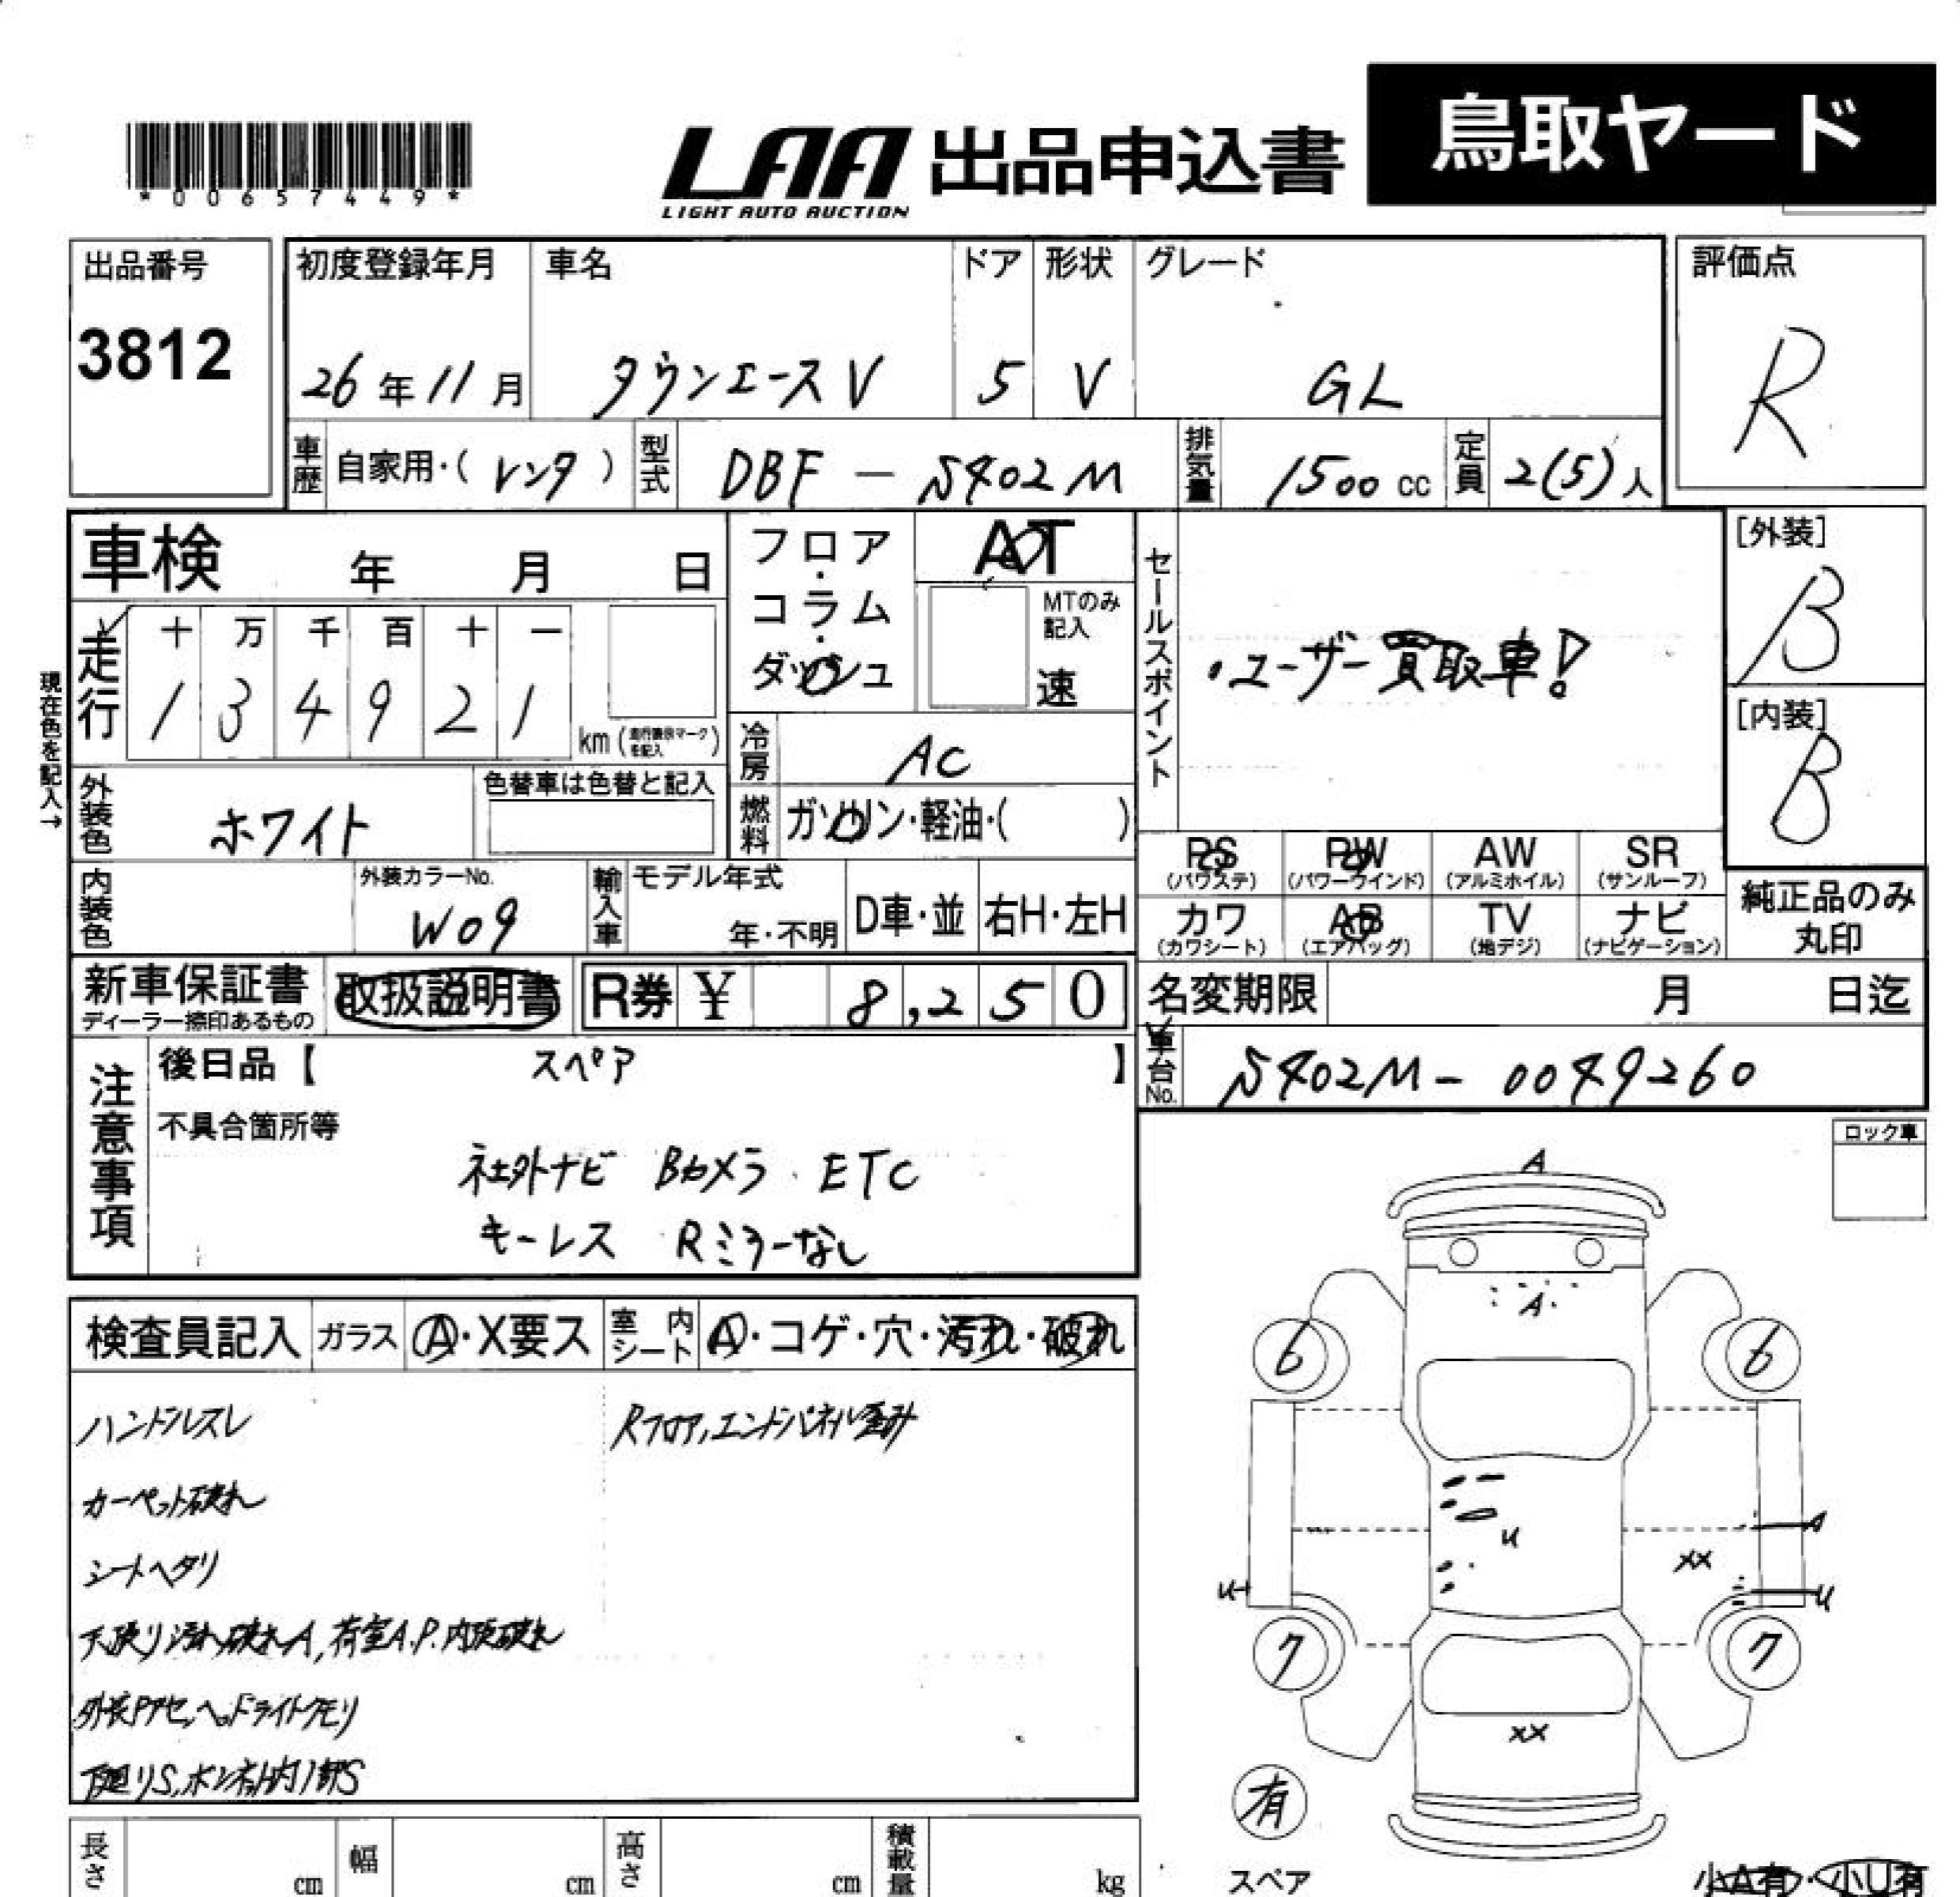 鳥取ヤード
*00657449*
LAA 出品申込書
LIGHT AUTO AUCTION
出品番号
3812
初度登録年月 車名 ドア 形状 グレード
26年11月 タウンエースV 5 V GL
評価点
R
車歴 自家用・(レンタ) 型式 DBF-S402M 排気量 1500cc 定員 2(5)人
車検 年 月 日
フロア・コラム・ダッシュ
AT
MTのみ記入
速
セールスポイント
・ユーザー買取車!
[外装]
B
[内装]
B
現在色を記入→
走行 十 万 千 百 十 一
1 3 4 9 2 1 km
冷房 AC
燃料 ガソリン・軽油・( )
外装色 ホワイト
色替車は色替と記入
内装色
外装カラーNo.
W09
輸入車 モデル年式
年・不明 D車・並 右H・左H
PS PW AW SR
(パワステ) (パワーウインド) (アルミホイル) (サンルーフ)
カワ AB TV ナビ
(カワシート) (エアバッグ) (地デジ) (ナビゲーション)
純正品のみ
丸印
新車保証書 取扱説明書 R券 ¥ 8,250
ディーラー捺印あるもの
名変期限 月 日迄
車台No. S402M-0049260
注意事項
後日品【 スペア 】
不具合箇所等
社外ナビ Bカメラ ETC
キーレス Rミラーなし
ロック車
検査員記入 ガラス A・X要ス 室内シート A・コゲ・穴・汚れ・破れ
ハンドルスレ
Rフロア,エンドパネル歪み
カーペット破れ
シートヘタリ
天張り汚れ破れA,荷室A.P.内張破れ
外装Pアセ,ヘッドライトクモリ
下廻りS,ボンネット内部S
A
A
6 6
U
A
XX
U U
7 7
XX
有
スペア
小A有・小U有
長さ cm 幅 cm 高さ cm 積載量 kg